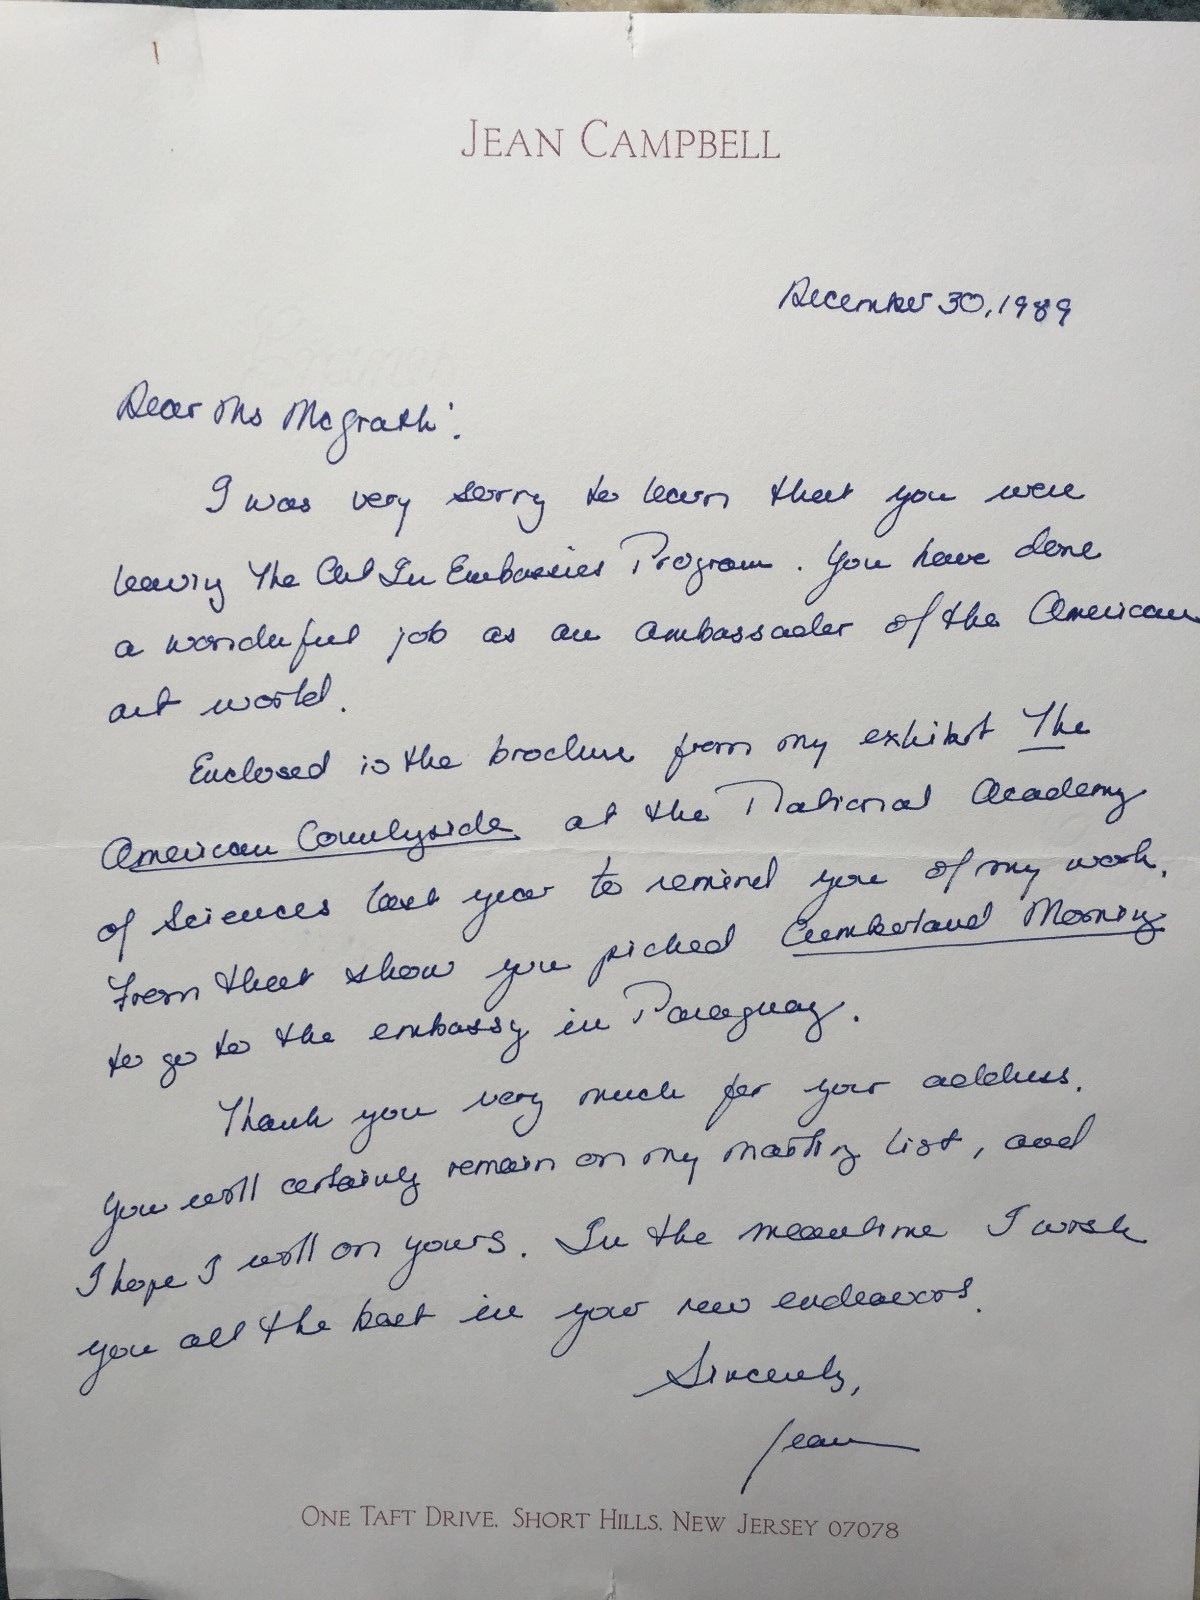 JEAN CAMPBELL
December 30, 1989
Dear Ms McGrath:
I was very sorry to learn that you were
leaving The Art In Embassies Program. You have done
a wonderful job as an ambassader of the American
art world.
Enclosed is the brochure from my exhibit The
American Countryside at the National Academy
of Sciences last year to remind you of my work.
From that show you picked Cumberland Morning
to go to the embassy in Paraguay.
Thank you very much for your address.
You will certainly remain on my mailing list, and
I hope I will on yours. In the meantime I wish
you all the best in your new endeavors.
Sincerely,
Jean
ONE TAFT DRIVE, SHORT HILLS, NEW JERSEY 07078